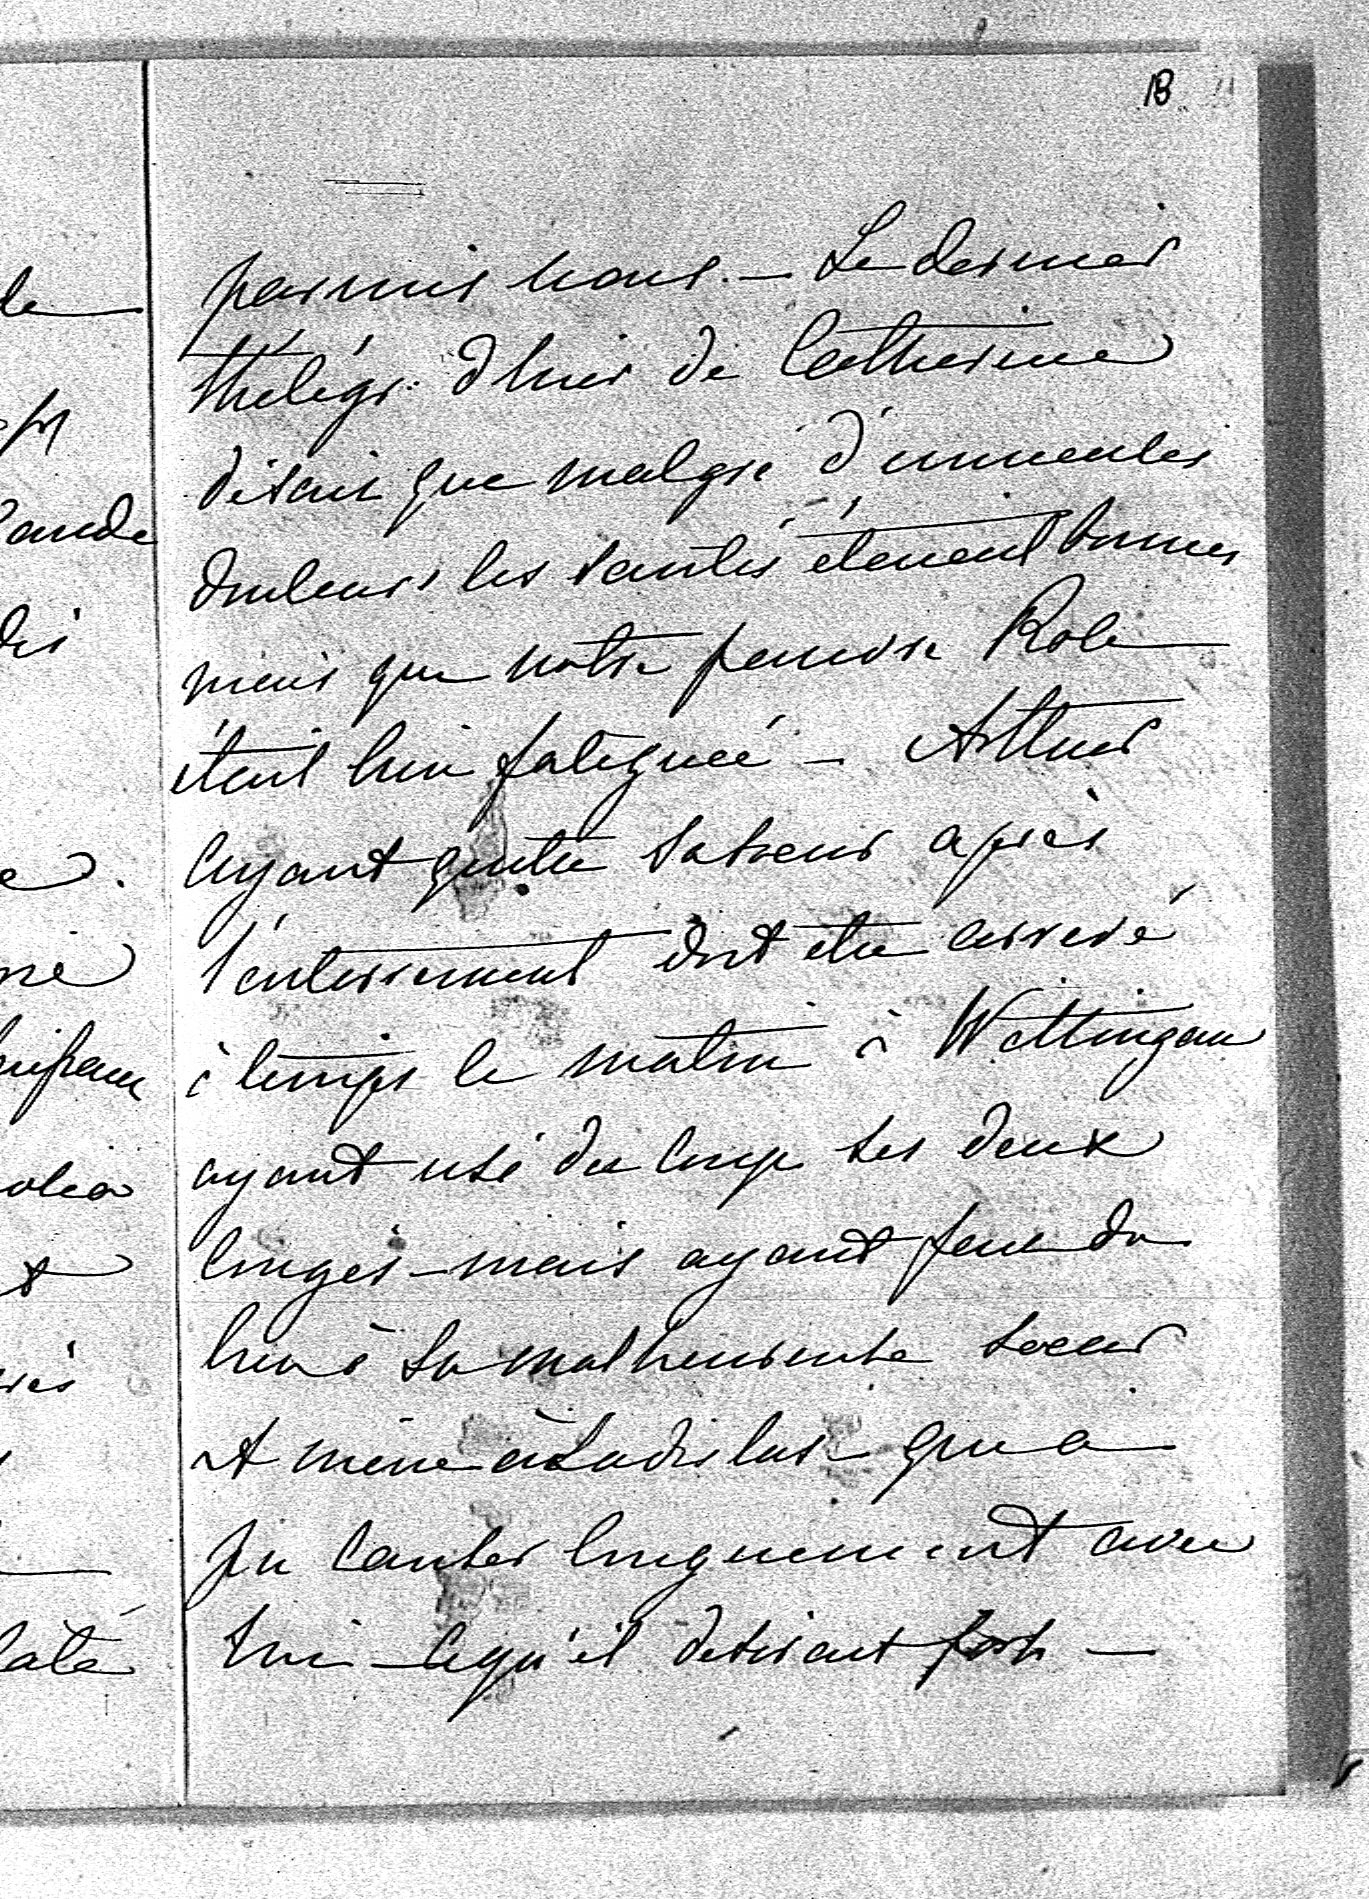 18
parmis nous. — Le dernier
thélégr. d'hier de Catherine
disait que malgré d'immenses
douleurs les santés étaient bonnes
mais que notre pauvre Rose
était bien fatiguée — Arthur
ayant quitté sa soeur après
l'enterrement doit être arrivé
à temps le matin à Wittingau
ayant usé du coup ses deux
congés — mais ayant fait du
bien à sa malheureuse soeur
et même à Ladislas — qui a
pu causer longuement avec
lui — ce qu'il désirait fort —